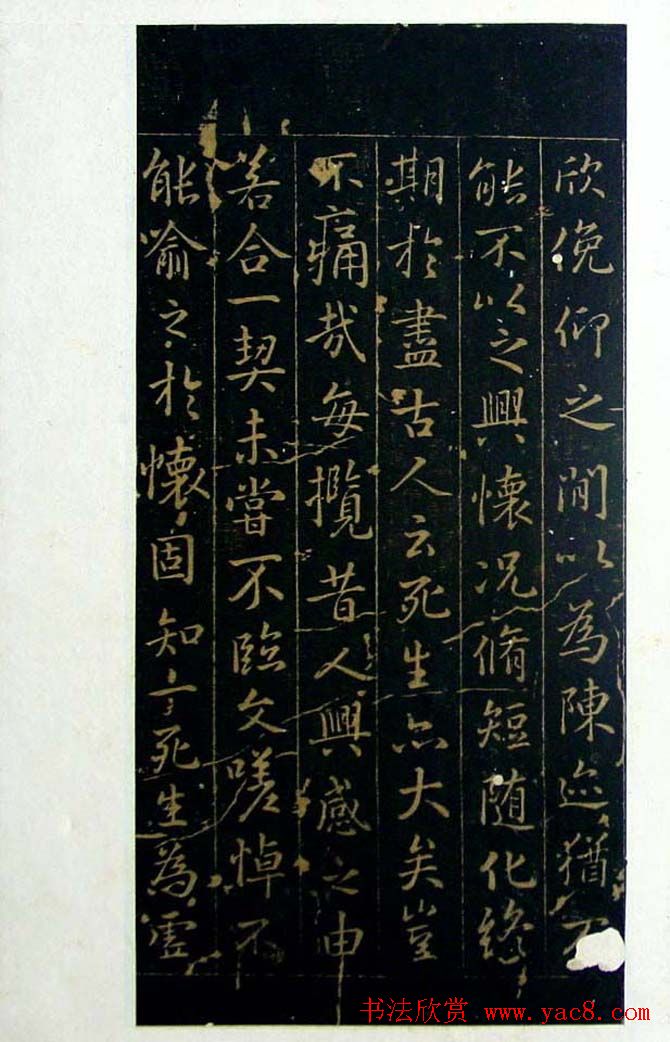 欣俛仰之閒以為陳迹猶不
能不以之興懷况脩短随化終
期於盡古人云死生亦大矣豈
不痛哉每攬昔人興感之由
若合一契未嘗不臨文嗟悼不
能喻之於懷固知一死生為虛
书法欣赏 www.yac8.com